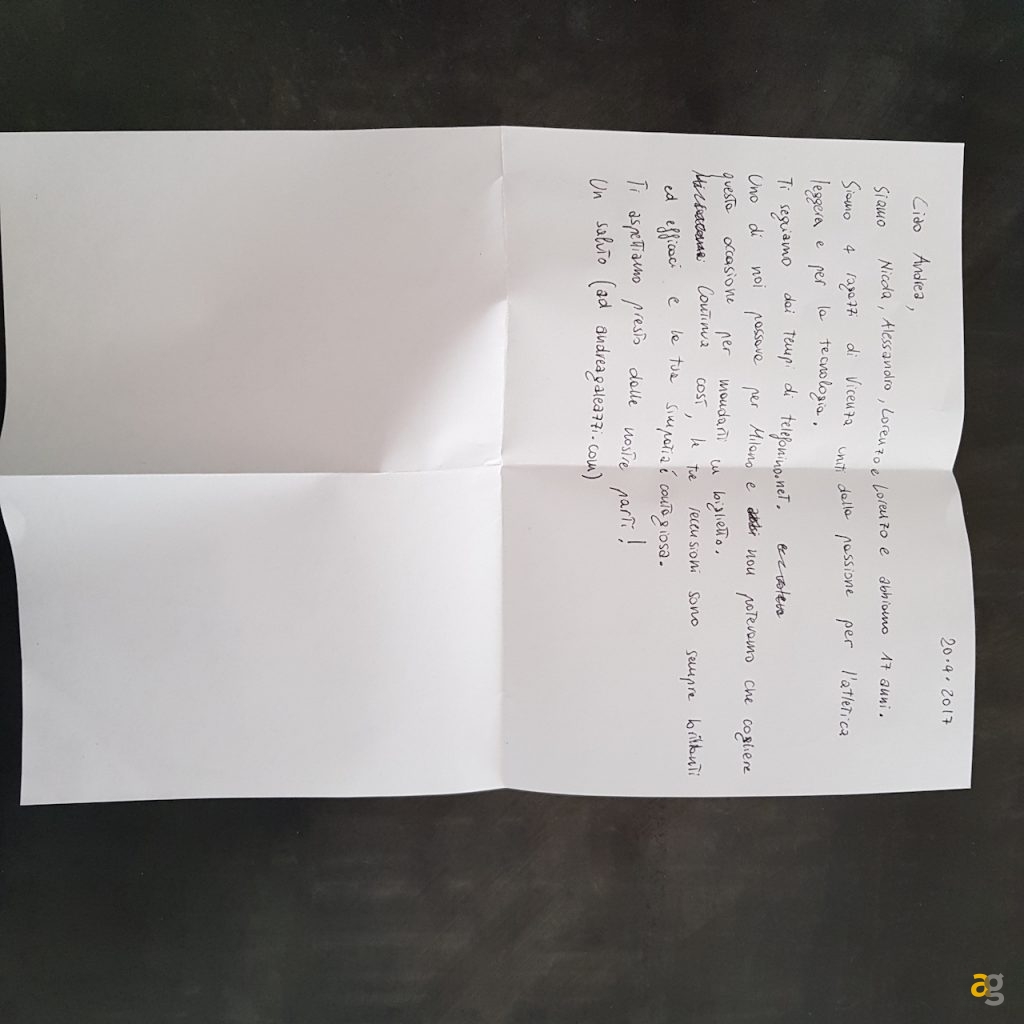 20.4.2017
Ciao Andrea,
Siamo Nicola, Alessandro, Lorenzo e Lorenzo e abbiamo 17 anni.
Siamo 4 ragazzi di Vicenza uniti dalla passione per l'atletica
leggera e per la tecnologia.
Ti seguiamo dai tempi di telefonino.net.
Uno di noi passava per Milano e non potevamo che cogliere
questa occasione per mandarti un biglietto.
Continua così, le tue recensioni sono sempre brillanti
ed efficaci e la tua simpatia é contagiosa.
Ti aspettiamo presto dalle nostre parti!
Un saluto (ad andreagaleazzi.com)
ag